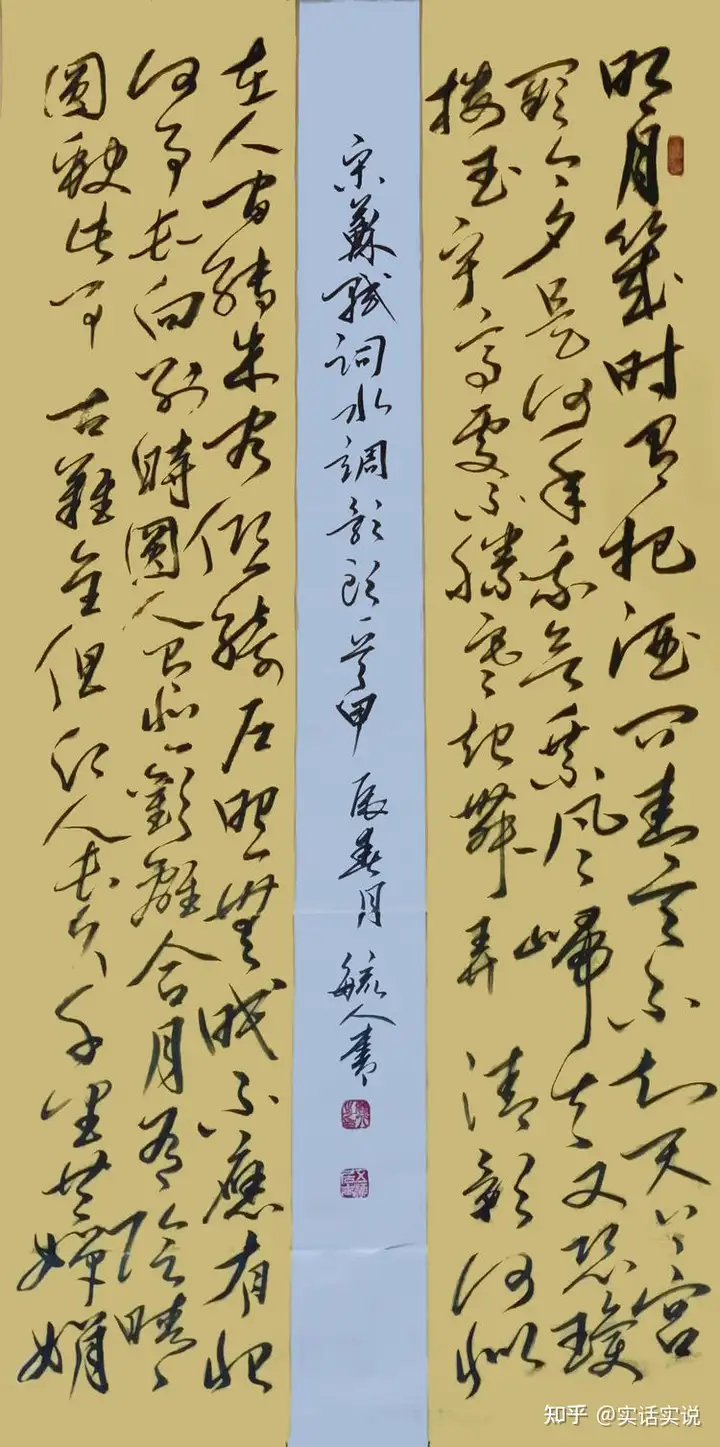 明月幾时有把酒问青天不知天上宫
阙今夕是何年我欲乘风歸去又恐瓊
楼玉宇高處不勝寒起舞弄清影何似
宋蘇軾词水調歌頭一首甲辰春月毓人書
在人间轉朱阁低綺户照無眠不應有恨
何事长向别時圓人有悲歡離合月有陰晴
圓缺此事古難全但願人長久千里共嬋娟
知乎 @实话实说